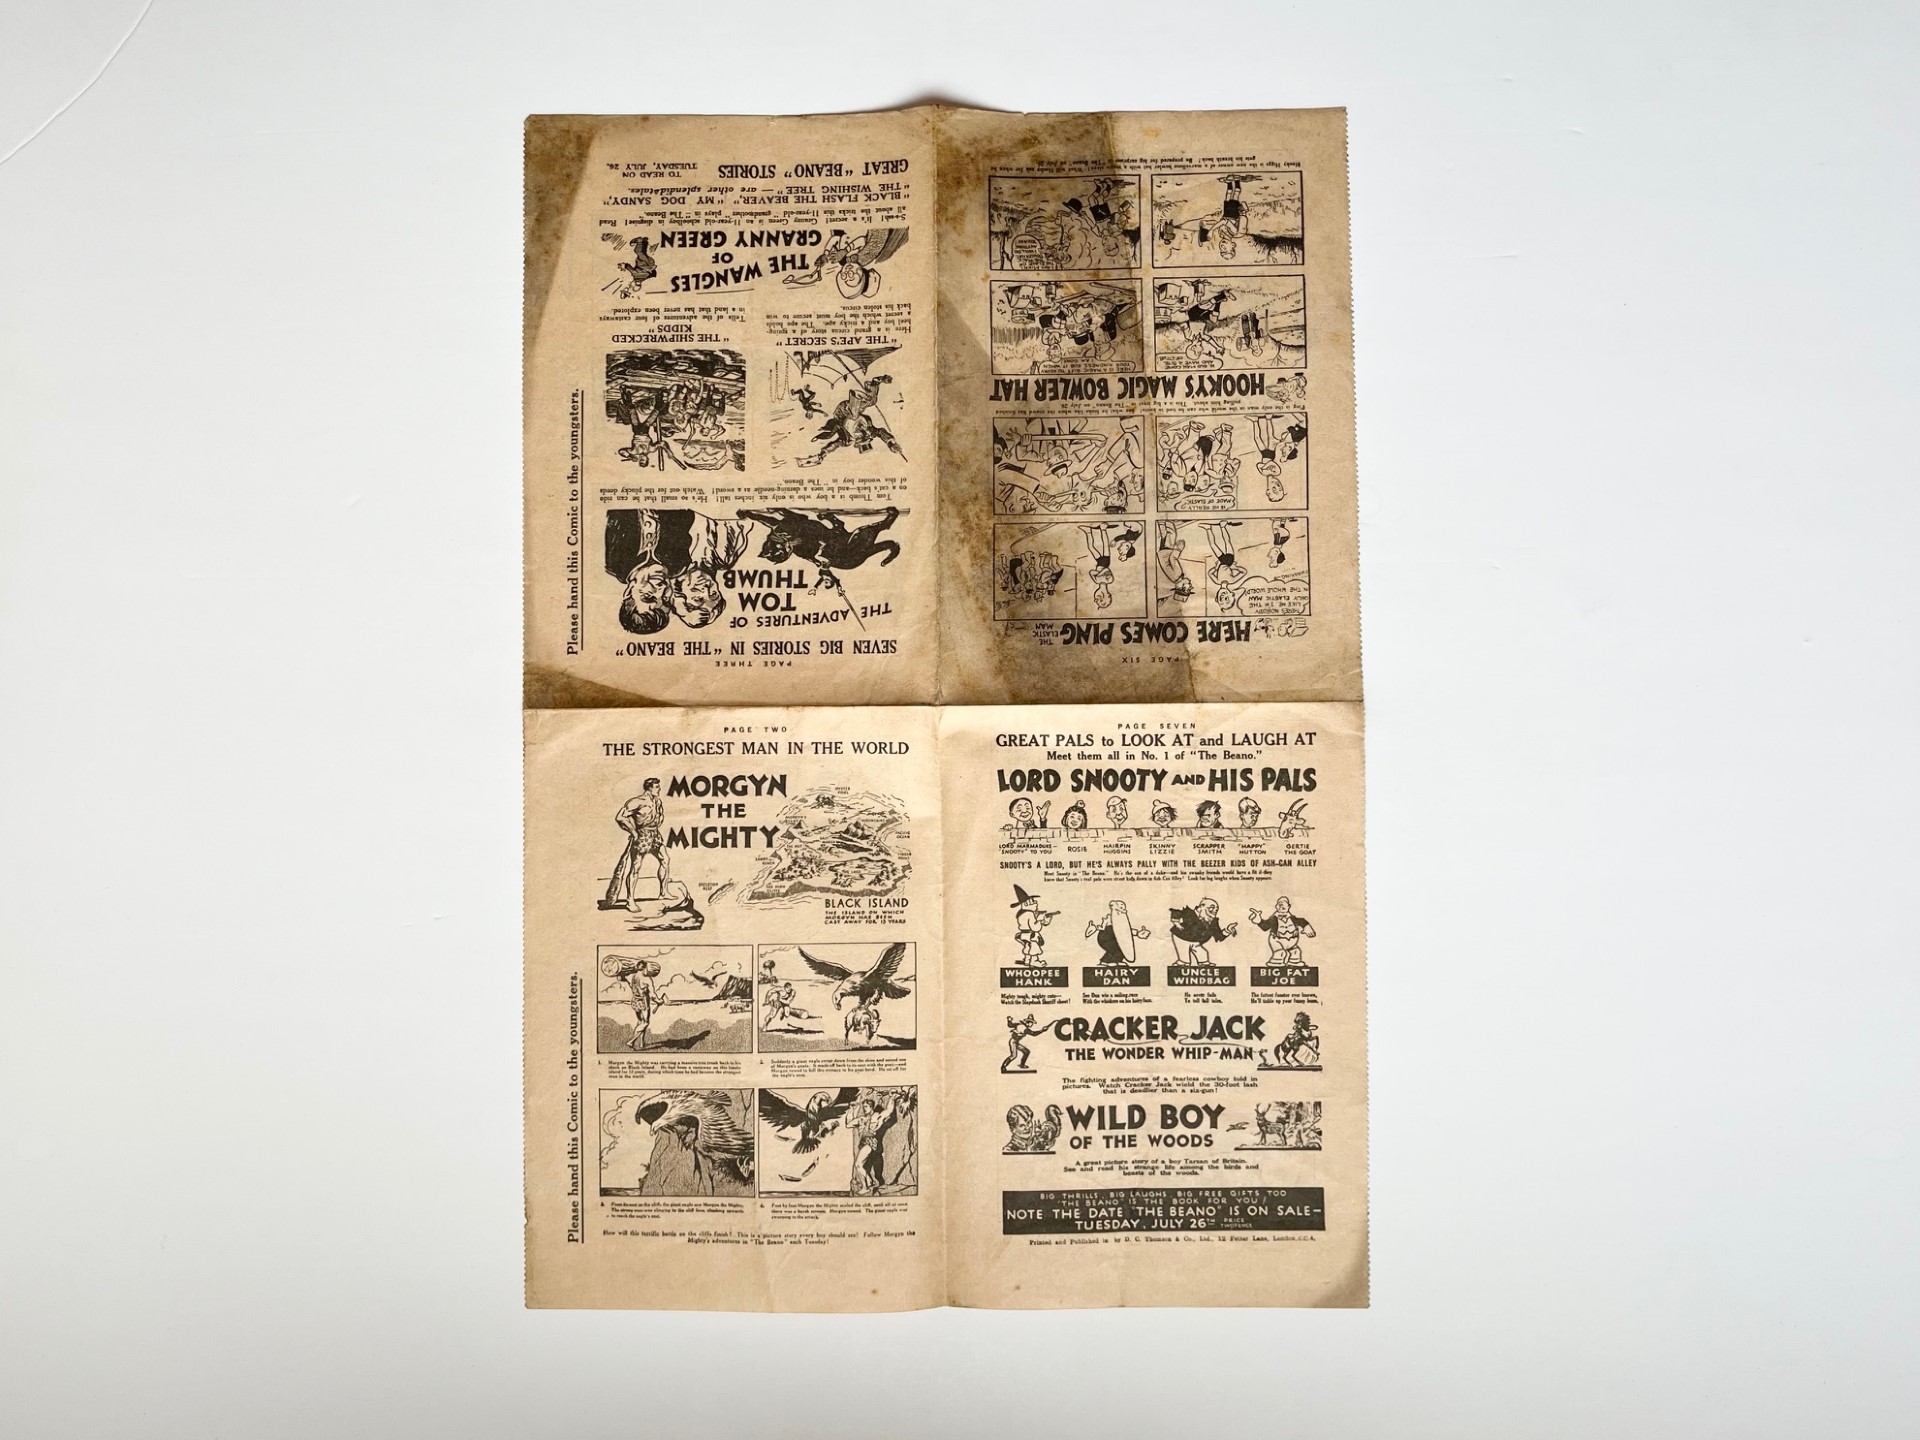 PAGE TWO
THE STRONGEST MAN IN THE WORLD
MORGYN
THE
MIGHTY
BLACK ISLAND
THE ISLAND ON WHICH
MORGYN HAS BEEN
CAST AWAY FOR 15 YEARS
1. Morgyn the Mighty was carrying a massive tree trunk back to his
shack on Black Island. He had been a castaway on this lonely
island for 15 years, during which time he had become the strongest
man in the world.
2. Suddenly a giant eagle swept down from the skies and seized one
of Morgyn's goats. It made off back to its nest with the goat—and
Morgyn vowed to kill this menace to his goat herd. He set off for
the eagle's nest.
3. From its nest on the cliffs the giant eagle saw Morgyn the Mighty.
The strong man was clinging to the cliff face, climbing upwards
to reach the eagle's nest.
4. Foot by foot Morgyn the Mighty scaled the cliff, until all at once
there was a harsh scream. Morgyn turned. The giant eagle was
swooping to the attack.
How will this terrific battle on the cliffs finish? This is a picture story every boy should see! Follow Morgyn the
Mighty's adventures in "The Beano" each Tuesday!
Please hand this Comic to the youngsters.
PAGE SEVEN
GREAT PALS to LOOK AT and LAUGH AT
Meet them all in No. 1 of "The Beano."
LORD SNOOTY AND HIS PALS
LORD MARMADUKE—
"SNOOTY" TO YOU
ROSIE
HAIRPIN
HUGGINS
SKINNY
LIZZIE
SCRAPPER
SMITH
"HAPPY"
HUTTON
GERTIE
THE GOAT
SNOOTY'S A LORD, BUT HE'S ALWAYS PALLY WITH THE BEEZER KIDS OF ASH-CAN ALLEY
Meet Snooty in "The Beano." He's the son of a duke—and his swanky friends would have a fit if they
knew that Snooty's real pals were street kids down in Ash Can Alley! Look for big laughs when Snooty appears.
WHOOPEE
HANK
Mighty tough, mighty cute—
Watch the Slapdash Sheriff shoot!
HAIRY
DAN
See Dan win a sailing race
With the whiskers on his hairy face.
UNCLE
WINDBAG
He never fails
To tell tall tales.
BIG FAT
JOE
The fattest funster ever known,
He'll tickle up your funny bone.
CRACKER JACK
THE WONDER WHIP-MAN
The fighting adventures of a fearless cowboy told in
pictures. Watch Cracker Jack wield the 30-foot lash
that is deadlier than a six-gun!
WILD BOY
OF THE WOODS
A great picture story of a boy Tarzan of Britain.
See and read his strange life among the birds and
beasts of the woods.
BIG THRILLS, BIG LAUGHS, BIG FREE GIFTS TOO
"THE BEANO" IS THE BOOK FOR YOU!
NOTE THE DATE "THE BEANO" IS ON SALE—
TUESDAY, JULY 26TH PRICE TWOPENCE
Printed and Published in by D. C. Thomson & Co., Ltd., 12 Fetter Lane, London, E.C.4.
PAGE SIX
HERE COMES PING THE ELASTIC MAN
THERE'S NOBODY
LIKE ME I'M THE
ONLY ELASTIC MAN
IN THE WHOLE WORLD
HE REALLY IS
MADE OF ELASTIC
Ping is the only man in the world who can be tied in knots! See what he looks like when the crowd has finished
pulling him about. This is a big treat in "The Beano" on July 26
HOOKY'S MAGIC BOWLER HAT
OLD MAN COME
AND HAVE A BITE
HERE IS A MAGIC GIFT TO REPAY
YOUR KINDNESS RUB IT WHEN
I AM GONE
Hooky Higgs is the new owner of a marvellous bowler hat with a magic slave! What will Hooky ask for when he
gets his breath back? Be prepared for big surprises in "The Beano" on July 26
PAGE THREE
SEVEN BIG STORIES IN "THE BEANO"
THE ADVENTURES OF
TOM
THUMB
Tom Thumb is a boy who is only six inches tall! He's so small that he can ride
on a cat's back—and he uses a darning-needle as a sword! Watch out for the plucky deeds
of this wonder boy in "The Beano."
"THE APE'S SECRET"
Here is a grand circus story of a young-
heel boy and a tricky ape. The ape holds
a secret which the boy must secure to win
back his stolen circus.
"THE SHIPWRECKED
KIDDS"
Tells of the adventures of four castaways
in a land that has never been explored.
THE WANGLES
OF
GRANNY GREEN
S-s-sh! It's a secret! Granny Green is an 11-year-old schoolboy in disguise! Read
all about the tricks this 11-year-old "grandmother" plays in "The Beano."
"BLACK FLASH THE BEAVER" "MY DOG SANDY",
"THE WISHING TREE"— are other splendid tales.
GREAT "BEANO" STORIES TO READ ON TUESDAY, JULY 26.
Please hand this Comic to the youngsters.